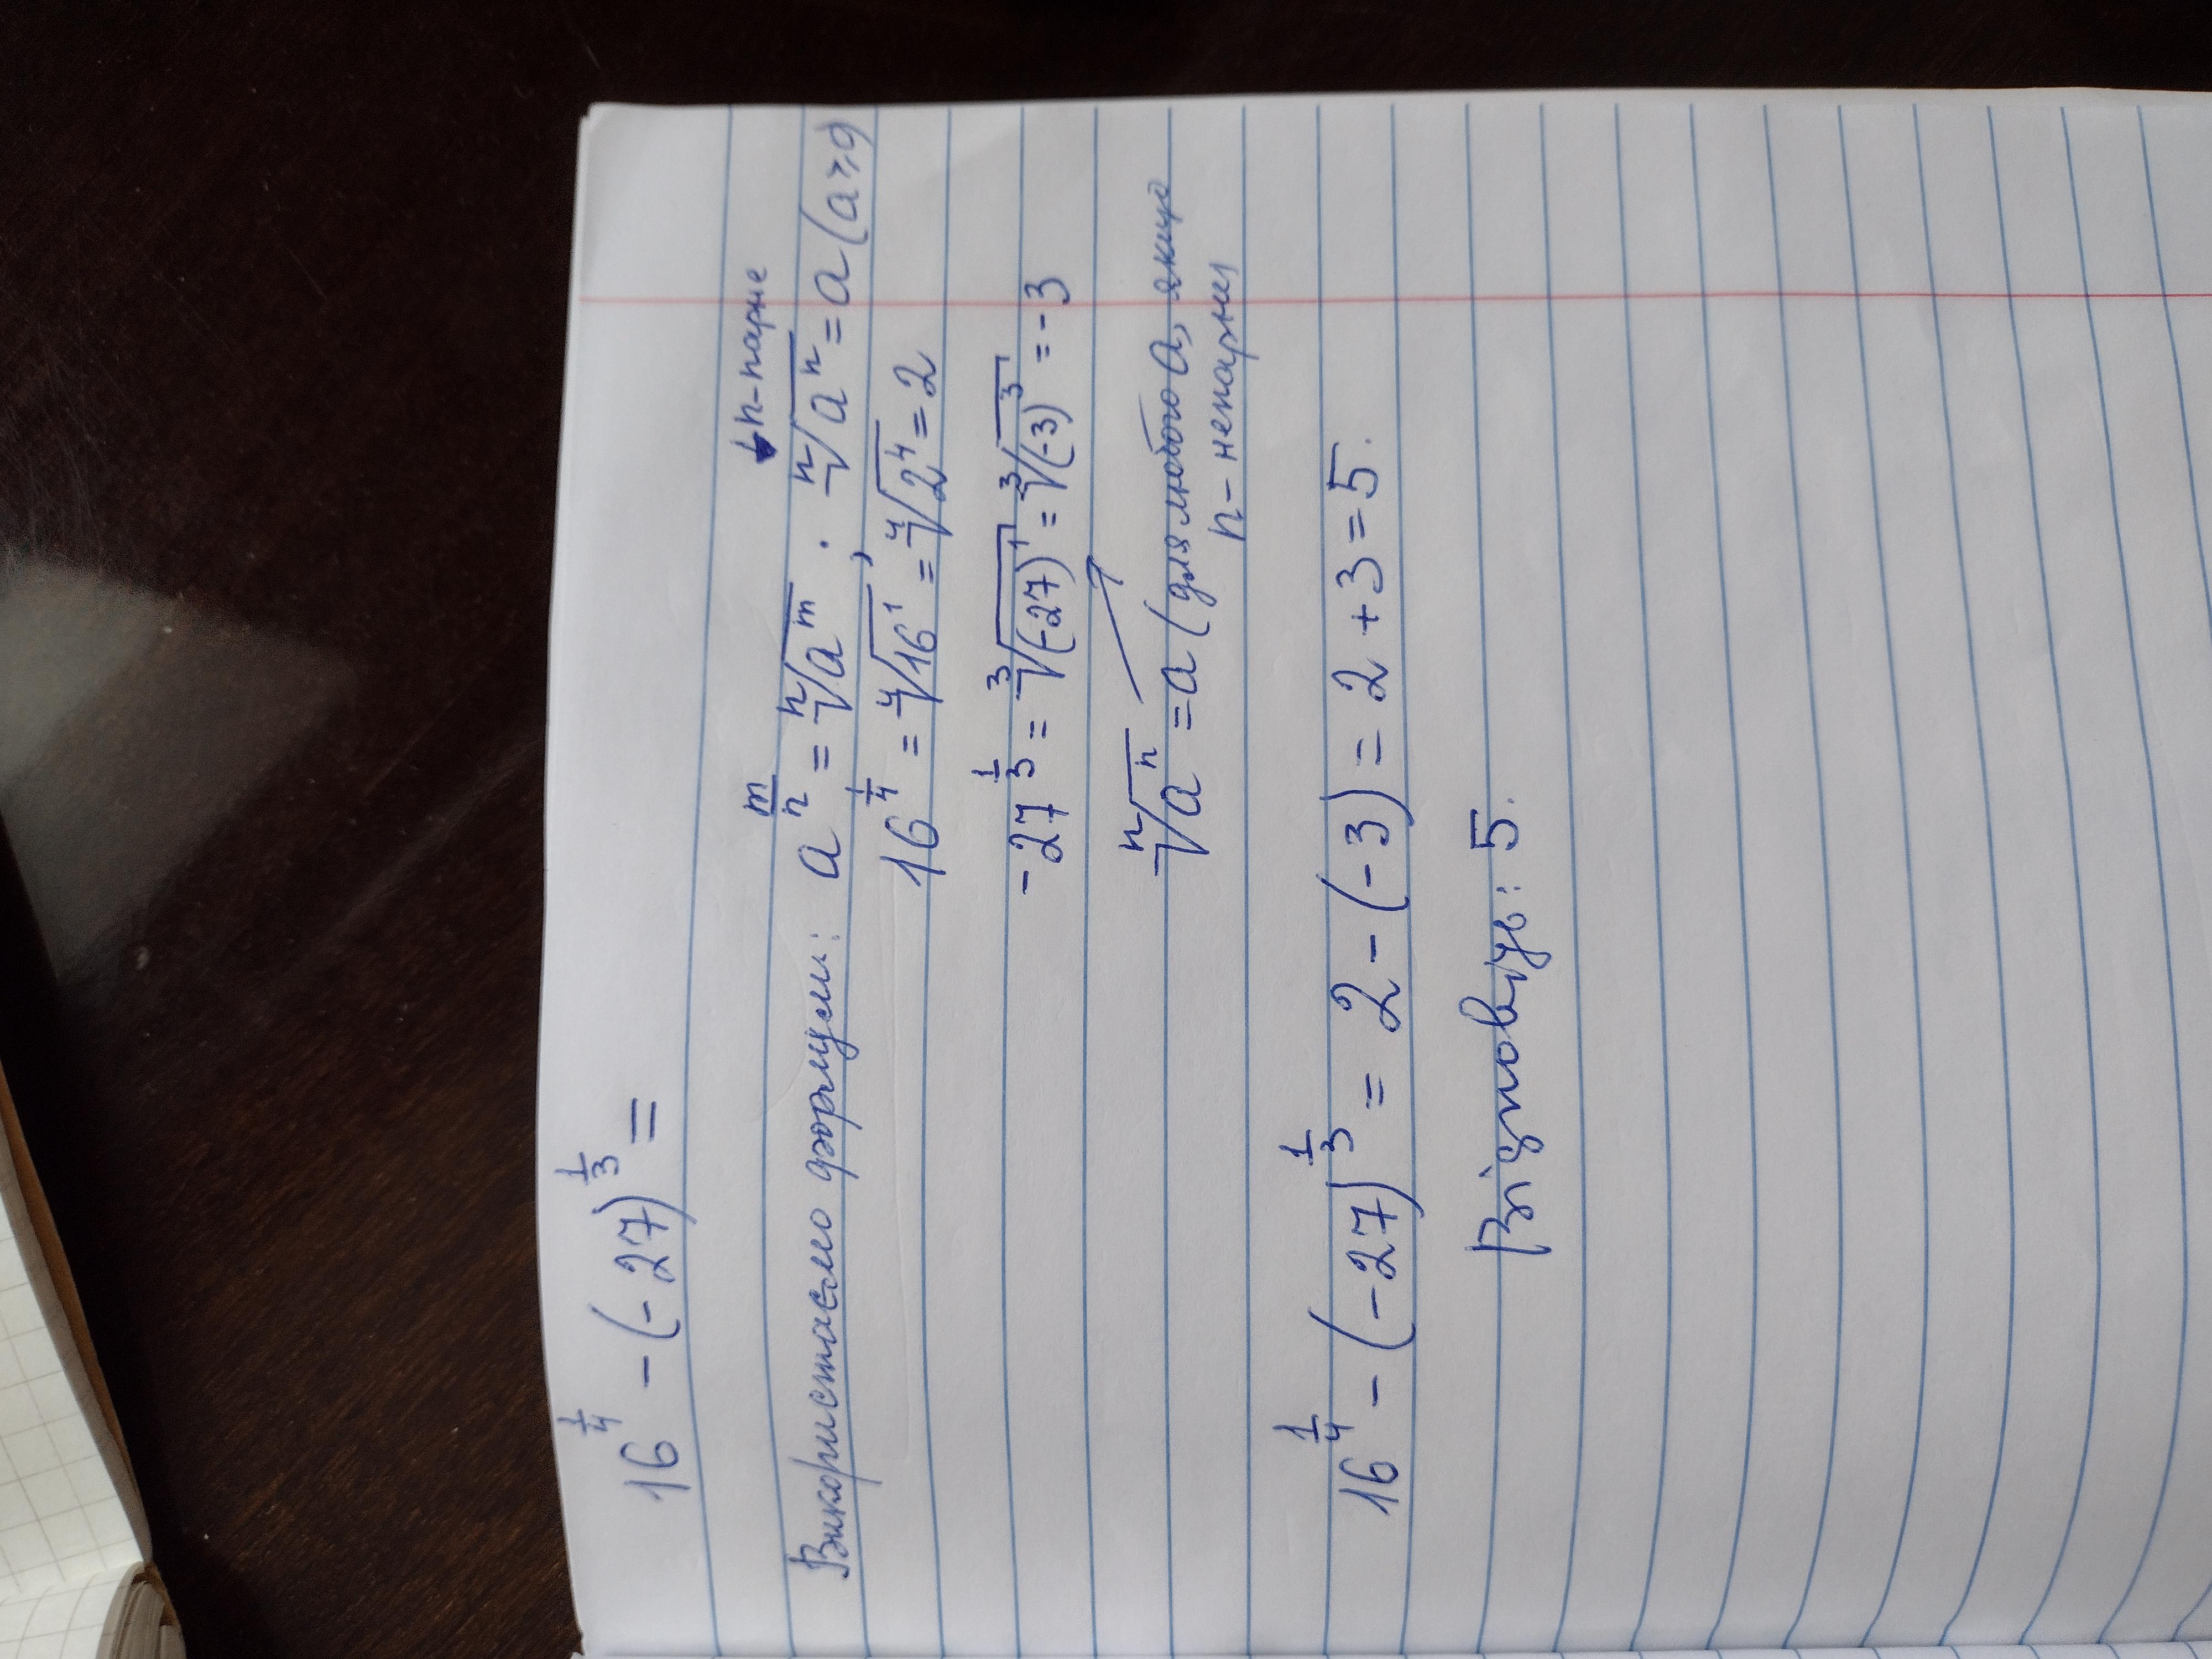 16^(1/4) - (-27)^(1/3) =
↓ n - парне
Використаємо формули: a^(m/n) = ⁿ√(a^m) . ⁿ√(a^n) = a (a ≥ 0)
16^(1/4) = ⁴√(16^1) = ⁴√(2^4) = 2
-27^(1/3) = ³√((-27)^1) = ³√((-3)^3) = -3
ⁿ√(a^n) = a (для любого a, якщо
n - непарне)
16^(1/4) - (-27)^(1/3) = 2 - (-3) = 2 + 3 = 5.
Відповідь: 5.